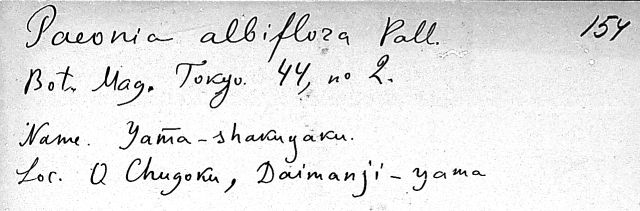 Paeonia albiflora Pall. 154
Bot. Mag. Tokyo. 44, no 2.
Name. Yama-shakuyaku.
Loc. O Chugoku, Daimanji-yama